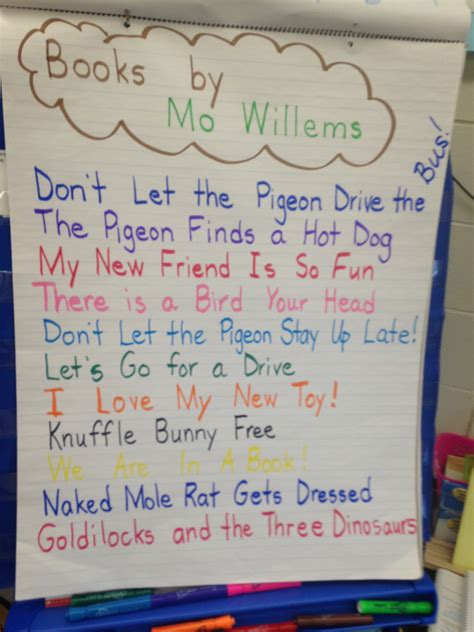 Books by
Mo Willems
Don't Let the Pigeon Drive the Bus!
The Pigeon Finds a Hot Dog
My New Friend Is So Fun
There is a Bird Your Head
Don't Let the Pigeon Stay Up Late!
Let's Go for a Drive
I Love My New Toy!
Knuffle Bunny Free
We Are In A Book!
Naked Mole Rat Gets Dressed
Goldilocks and the Three Dinosaurs